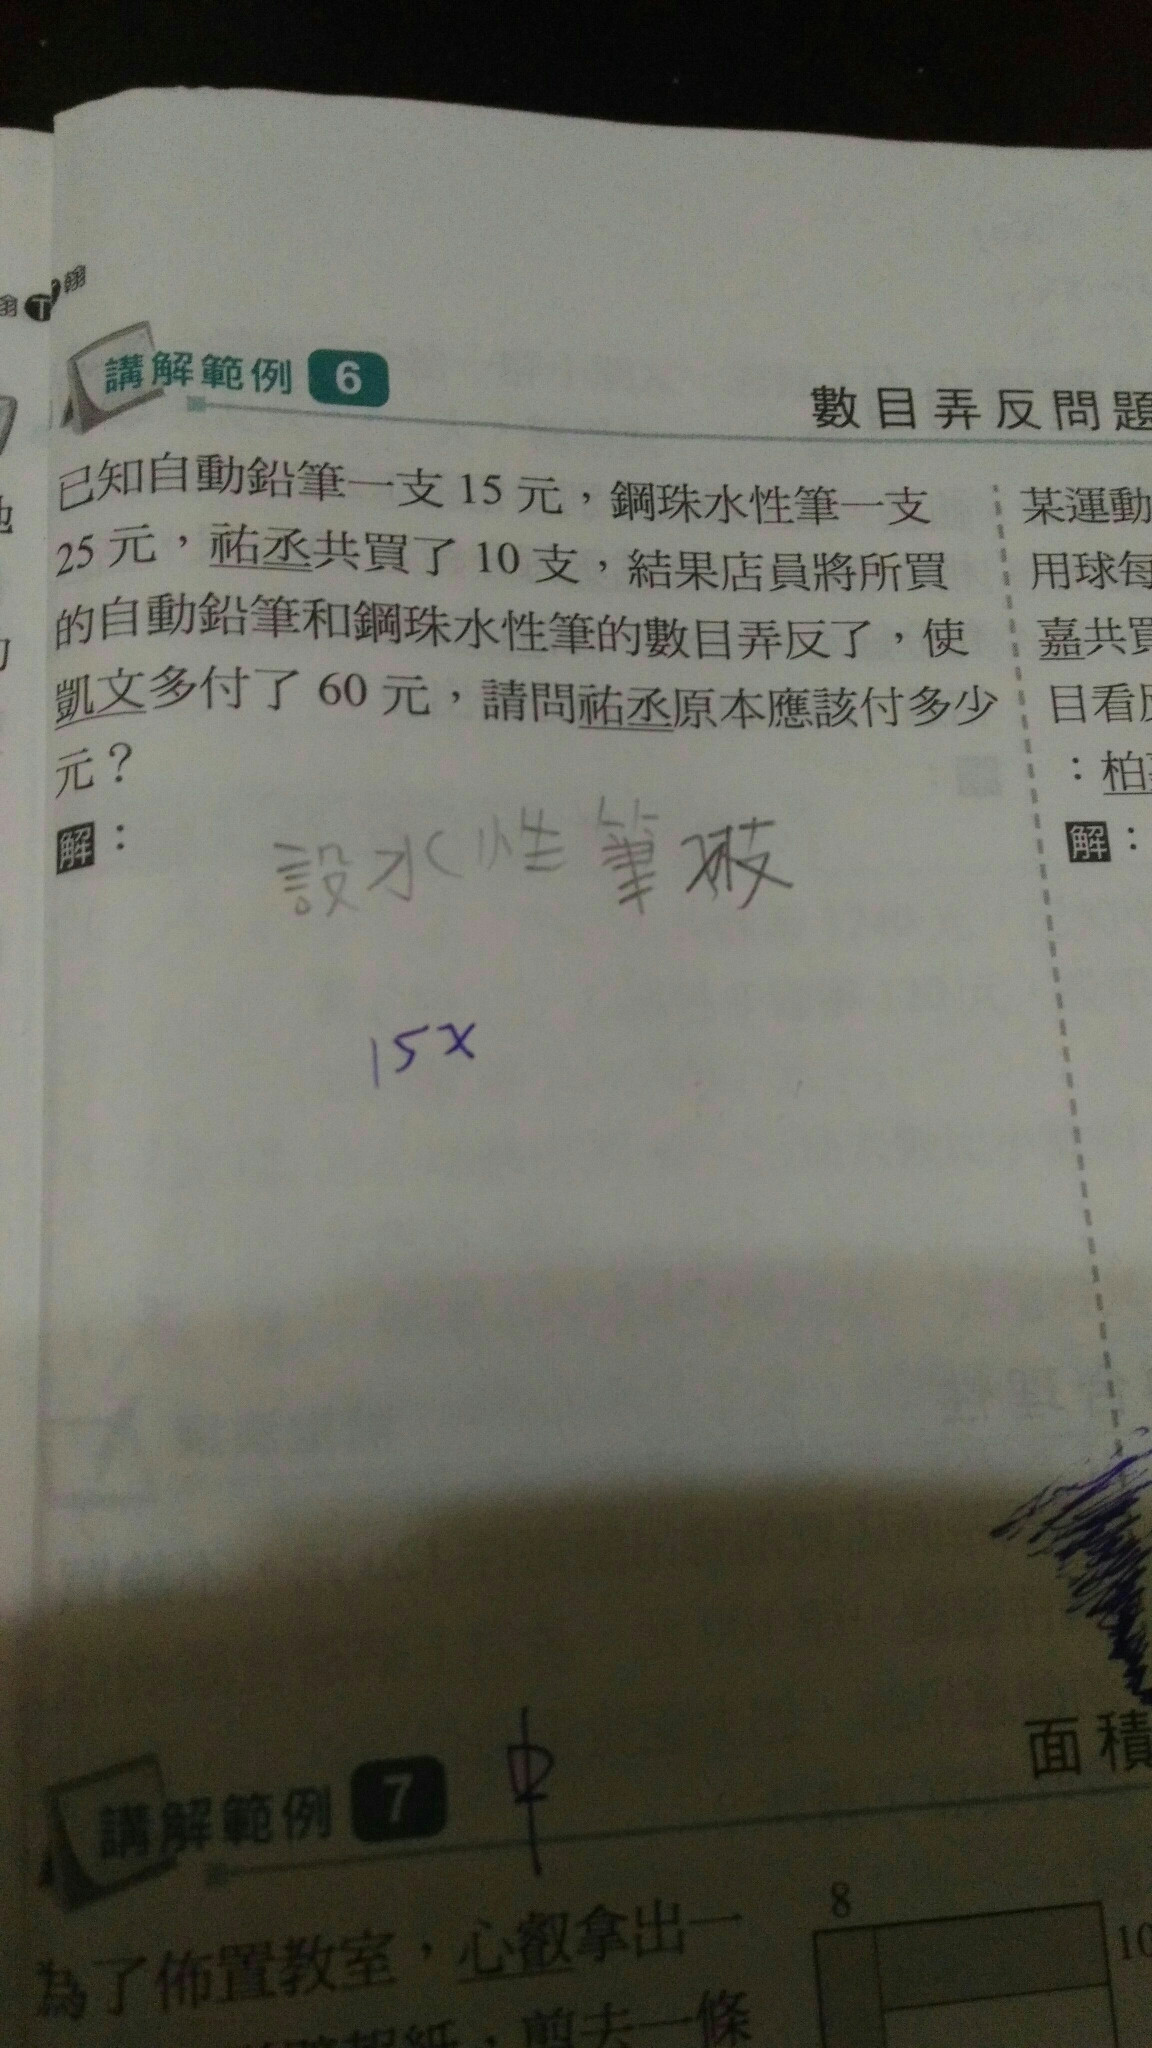 翰
講解範例 6
數目弄反問題
已知自動鉛筆一支 15 元，鋼珠水性筆一支
25 元，祐丞共買了 10 支，結果店員將所買
的自動鉛筆和鋼珠水性筆的數目弄反了，使
凱文多付了 60 元，請問祐丞原本應該付多少
元？
解：
設水性筆
15x
某運動
用球每
嘉共買
目看反
：柏
解：
講解範例 7
面積
為了佈置教室，心叡拿出一
報紙，剪去一條
8
10